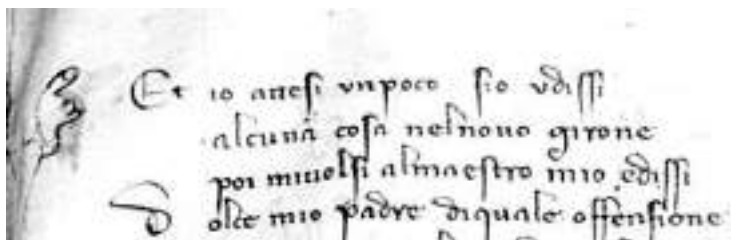 Et io attesi vnpoco sio vdissi
alcuna cosa nelnouo girone
poi miuolsi almaestro mio edissi
Dolce mio padre diquale offensione